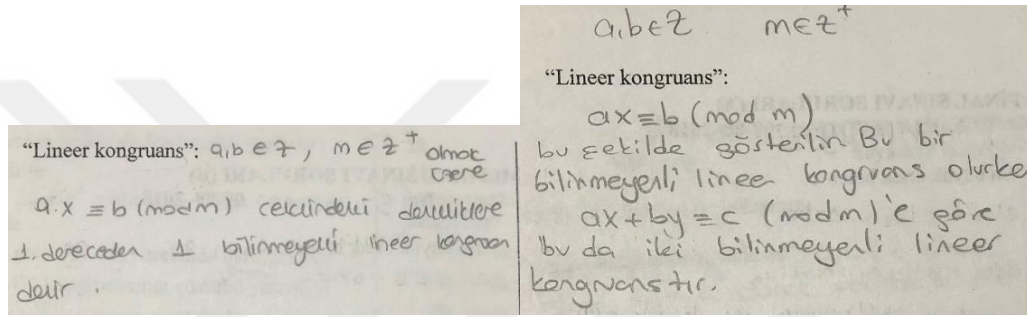 "Lineer kongruans": a,b ∈ Z, m ∈ Z⁺ olmak
üzere
a.x ≡ b (mod m) şeklindeki denkliklere
1. dereceden 1 bilinmeyenli lineer kongruans
denir.
a,b ∈ Z m ∈ Z⁺
"Lineer kongruans":
ax ≡ b (mod m)
bu şekilde gösterilir Bu bir
bilinmeyenli lineer kongruans olurke
ax + by ≡ c (mod m)'e göre
bu da iki bilinmeyenli lineer
kongruanstır.